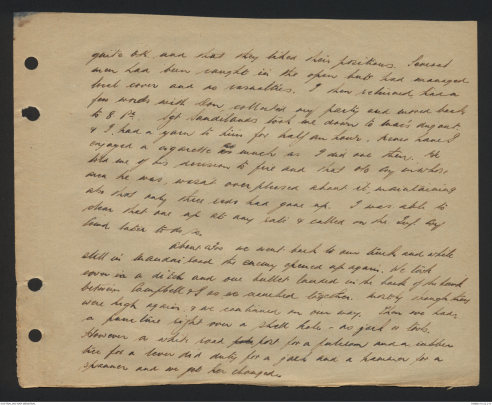 quite O.K. and that they liked their positions. Several
men had been caught in the open but had managed
took cover and no casualties. I then returned had a
few words with them collected my party and moved back
to 8 Pl. Sgt Sandilands took me down to
& I had a yarn to him for half an hour. have I
enjoyed a cigarette so much as I did one then. He
told me of his decision to fire and that
men he was, wasn't over pleased about it, maintaining
also that only three reds had gone up. I was able to
clear that one up at any rate & called on the Inf Bty
Cmd later to do so.
About we went back to our truck and while
still in road the enemy opened up again. We took
cover in a ditch and one bullet landed in the back of the bank
between Campbell & I as we crouched together. Mostly enough they
were high again, & we continued on our way. Then we had
a puncture right over a shell hole - no jack or tools.
However a white road post for a fulcrum and a
tree for a lever did duty for a jack and a hammer for a
spanner and we got her changed.